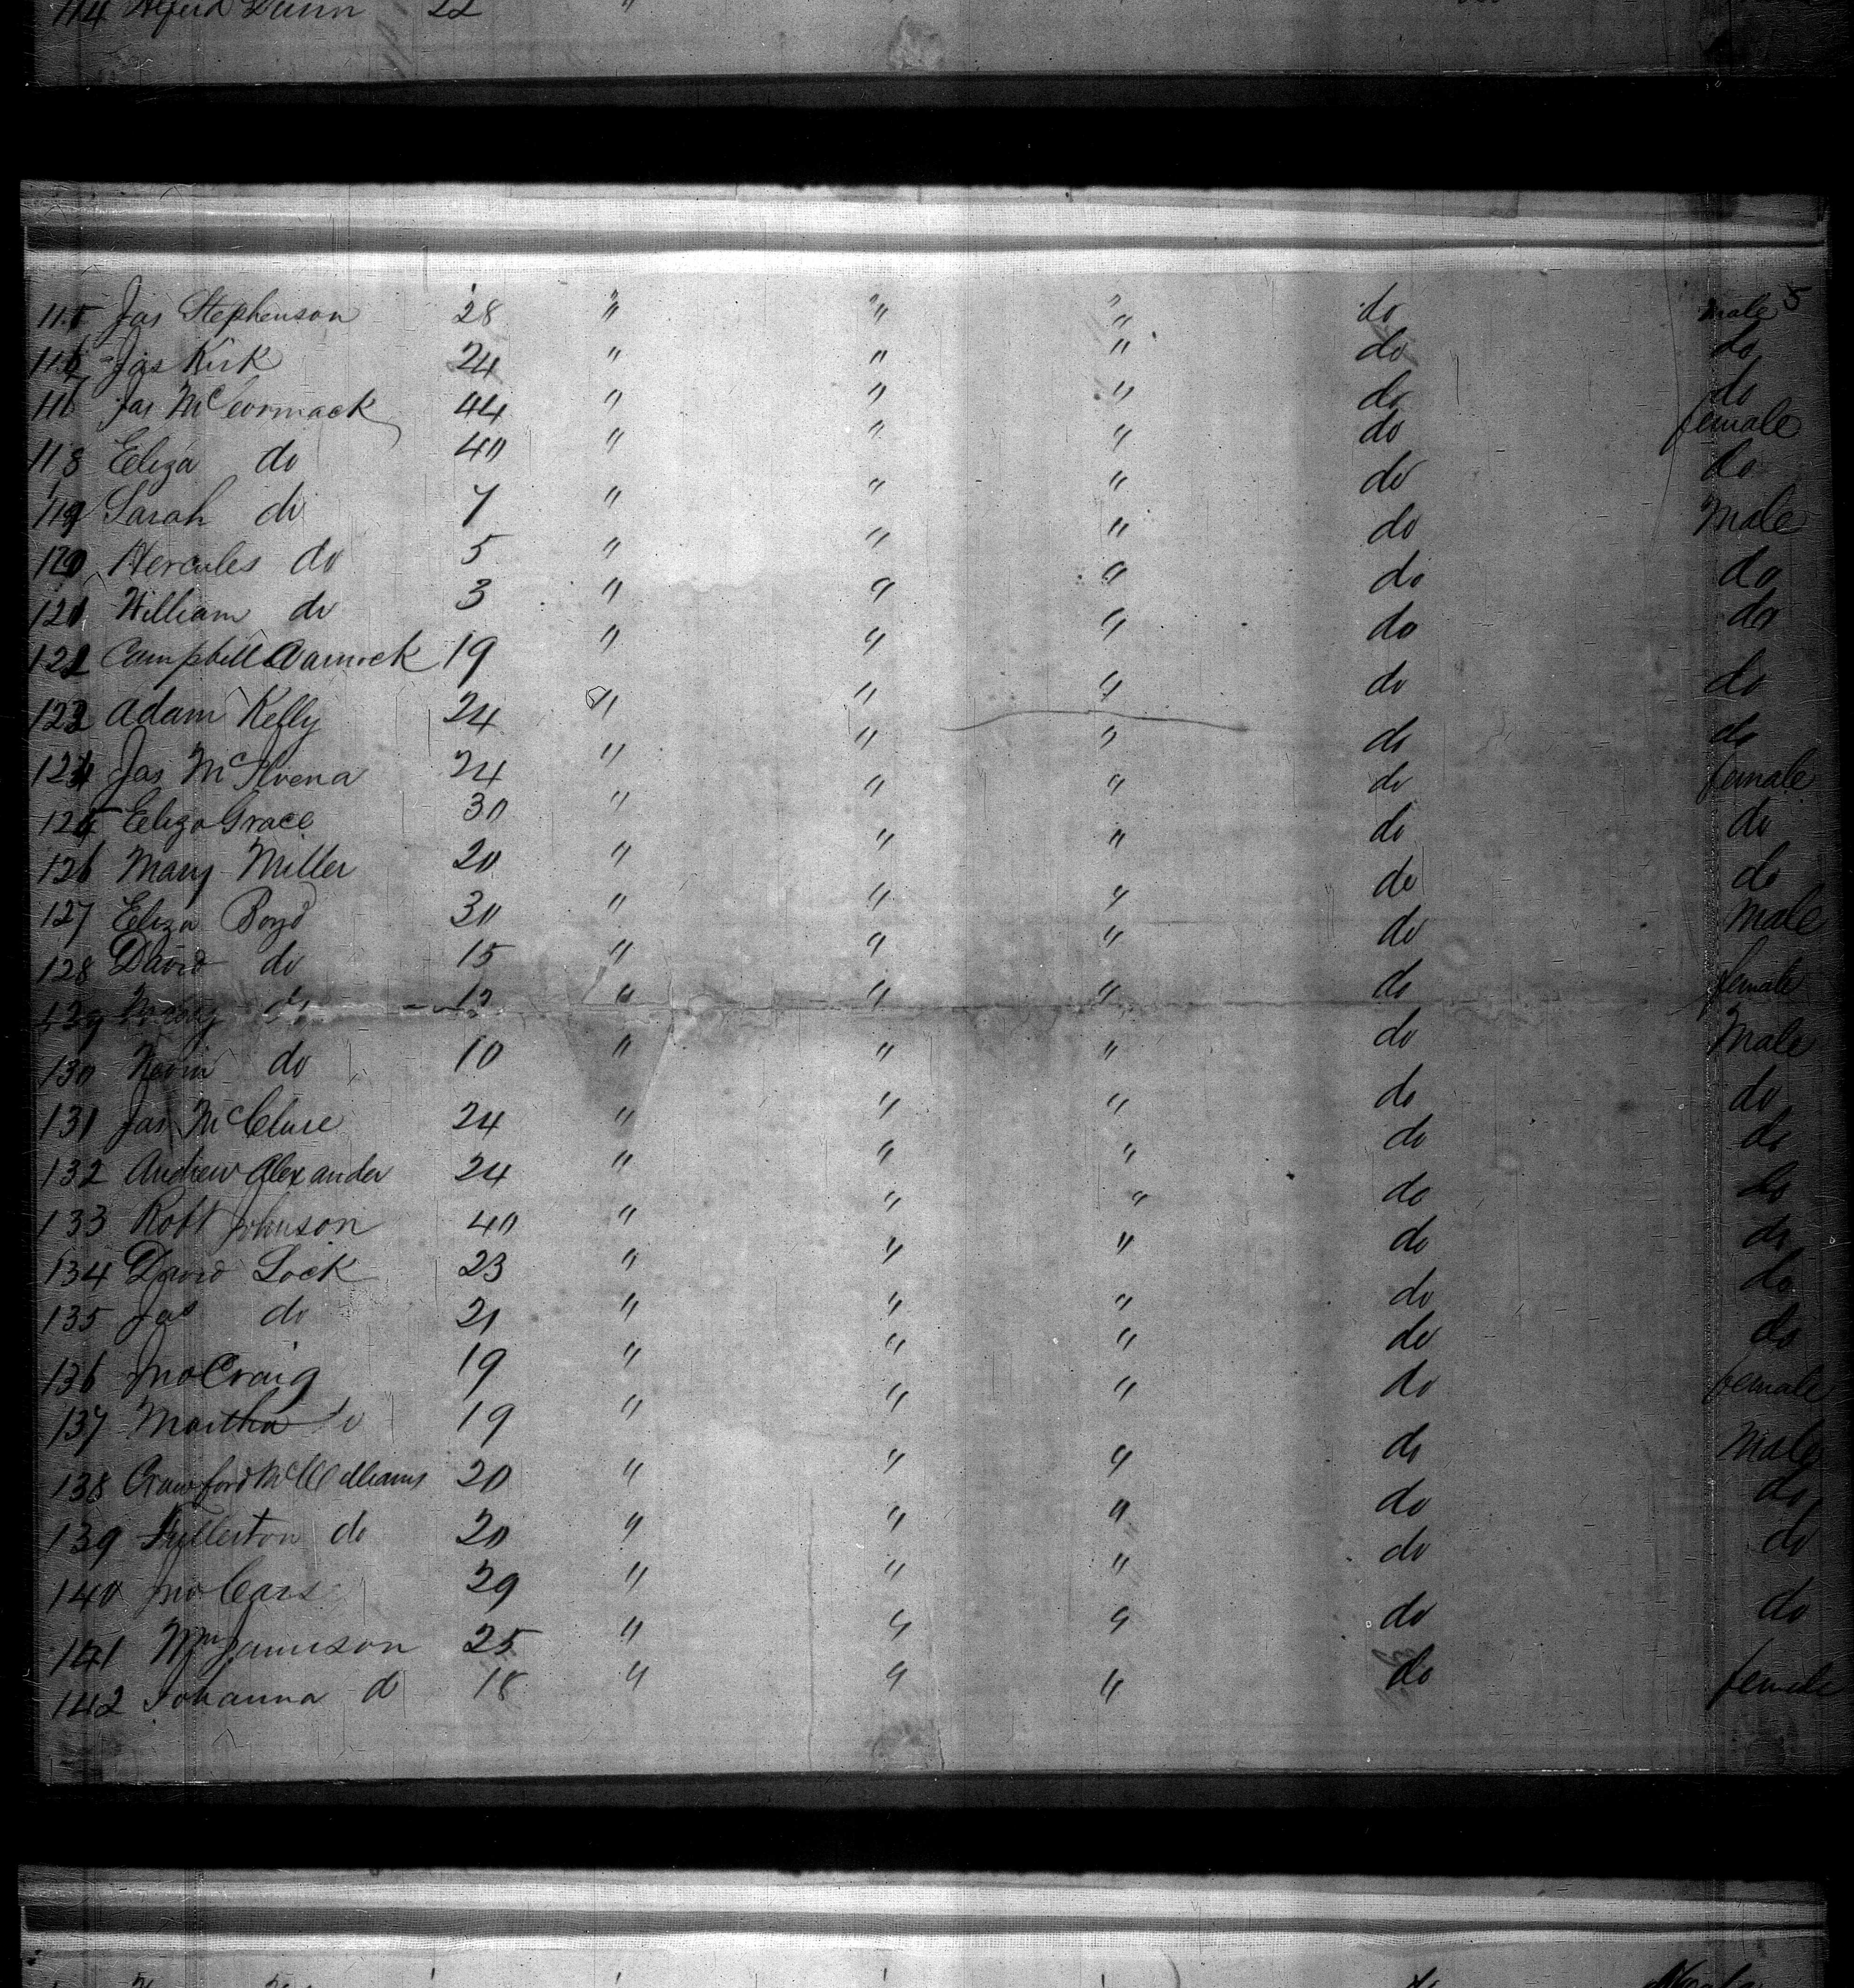 114 Alferd Dunn 22 "
115 Jas Stephenson 28 " " " do male 5
116 Jas Kirk 24 " " " do do
Jas McCormack 44 " " " do do
118 Eliza do 40 " " " do female
119 Sarah do 7 " " " do do
120 Hercules do 5 " " " do Male
121 William do 3 " " " do do
122 Campbell 19 " " " do do
123 Adam Kelly 24 " " " do do
124 Jas McIlvena 24 " " " do do
125 Eliza Grace 30 " " " do female
126 Mary Miller 20 " " " do do
127 Eliza Boyd 30 " " " do do
128 David do 15 " " " do male
129 do " " " do female
130 do 10 " " " do Male
131 Jas McClure 24 " " " do do
132 Andrew Alexander 24 " " " do do
133 Robt Johnson 40 " " " do do
134 David Lock 23 " " " do do
135 Jas do 21 " " " do do
136 Jno Craig 19 " " " do do
137 Martha do 19 " " " do female
138 Crawford McWilliams 20 " " " do Male
139 Fullerton do 20 " " " do do
140 Jno 29 " " " do do
141 Wm Jamison 25 " " " do do
142 Johanna d 18 " " " do female